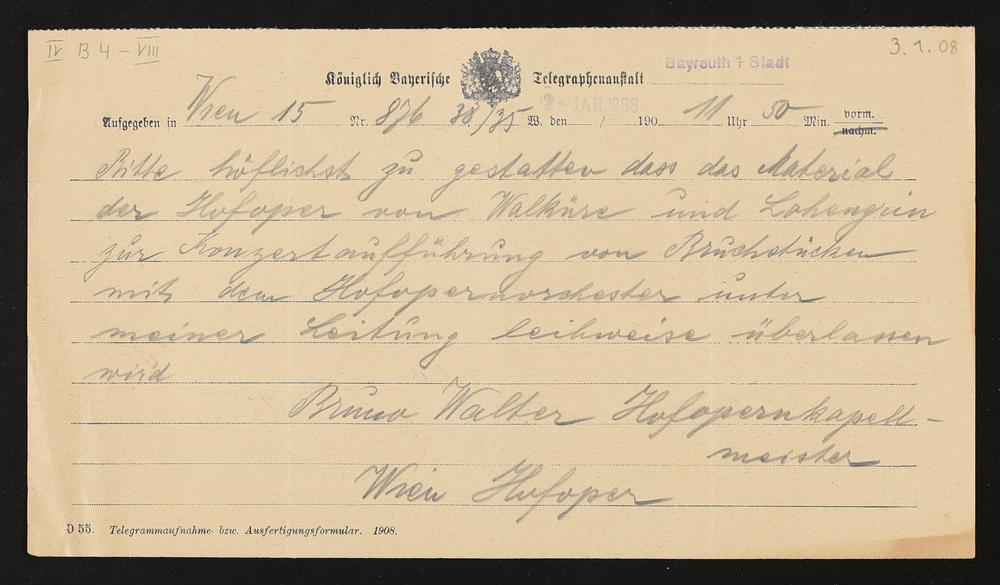 IV B 4 – VIII
3. 1. 08
Königlich Bayerische Telegraphenanstalt Bayreuth 1 Stadt
3- JAN. 1908
Aufgegeben in Wien 15 Nr. 876 38/35 W. den / 190 11 Uhr 50 Min. vorm.
nachm.
Bitte höflichst zu gestatten dass das Material
der Hofoper von Walküre und Lohengrin
zur Konzertaufführung von Bruchstücken
mit dem Hofopernorchester unter
meiner Leitung leihweise überlassen
wird
Bruno Walter Hofopernkapell-
meister
Wien Hofoper
D 55. Telegrammaufnahme- bzw. Ausfertigungsformular. 1908.